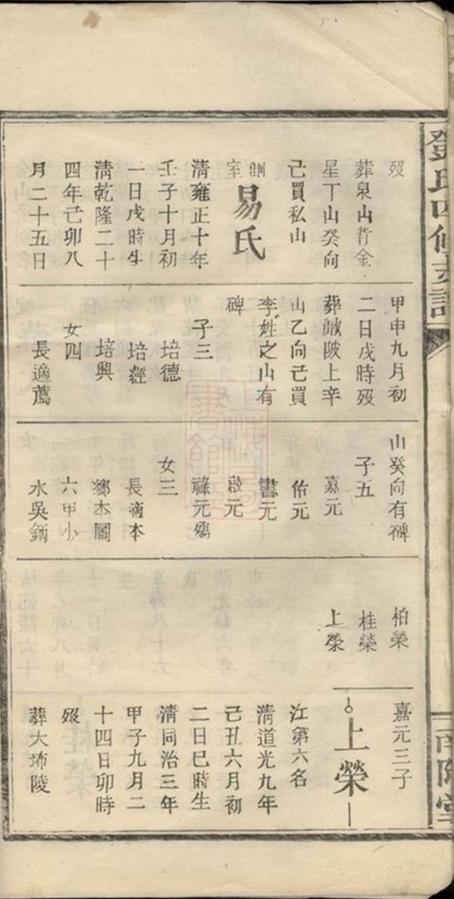 歿
葬泉山背金
星丁山癸向
己買私山
側室易氏
清雍正十年
壬子十月初
一日戌時生
清乾隆二十
四年己卯八
月二十五日
甲申九月初
二日戌時歿
葬城陂上辛
山乙向己買
李姓之山有
碑
子三
培德
培經
培興
女四
長適薦
山癸向有碑
子五
嘉元
佑元
書元
啟元
祿元殤
女三
長適本
鄉本圖
六甲小
水吳鎬
柏榮
桂榮
上榮
嘉元三子
上榮
江第六名
清道光九年
己丑六月初
二日巳時生
清同治三年
甲子九月二
十四日卯時
歿
葬大埗陵
鄧氏四修支譜
南陽堂